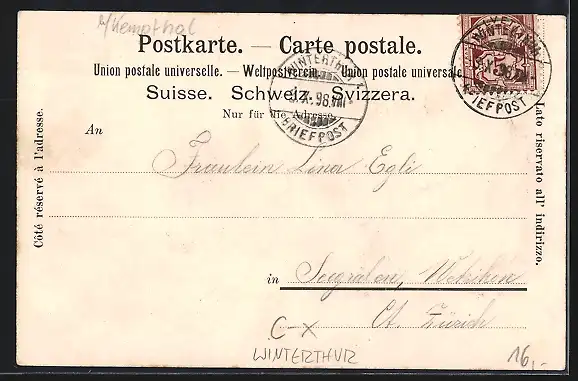 a/Kempthal
Postkarte. — Carte postale.
Union postale universelle. — Weltpostverein. — Unione postale universale.
Suisse. Schweiz. Svizzera.
Nur für die Adresse.
An
Fräulein Lina Egli
in Seegräben, Wetzikon
Ct. Zürich
Côté réservé à l'adresse.
Lato riservato all' indirizzo.
HELVETIA
WINTERTHUR
BRIEFPOST
WINTERTHUR
BRIEFPOST
C-X
WINTERTHUR
16,-